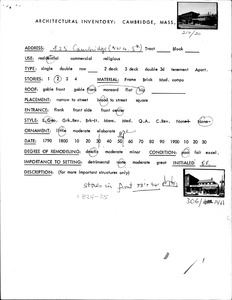 ARCHITECTURAL INVENTORY: CAMBRIDGE, MASS.
ADDRESS: 825 Cambridge Tract Block
USE: residential commercial religious
TYPE: single double row 2 deck 3 deck double 3d tenement Apart.
STORIES: 1 2 3 4 MATERIAL: Frame Brick Mod. compo
ROOF: gable front gable flank mansard flat hip
PLACEMENT: narrow to street broad to street square
ENTRANCE: flank front side front center
STYLE: Geo. Grk.Rev. Brk-it. Mans. Med. Q.A. C.Rev. None
ORNAMENT: little moderate elaborate
DATE: 1790 1800 10 20 30 40 50 60 70 80 90 1900 10 20 30
DEGREE OF REMODELING: drastic moderate minor CONDITION: poor fair excel.
IMPORTANCE TO SETTING: detrimental none moderate great INITIALED
DESCRIPTION: (for more important structures only)
store in front